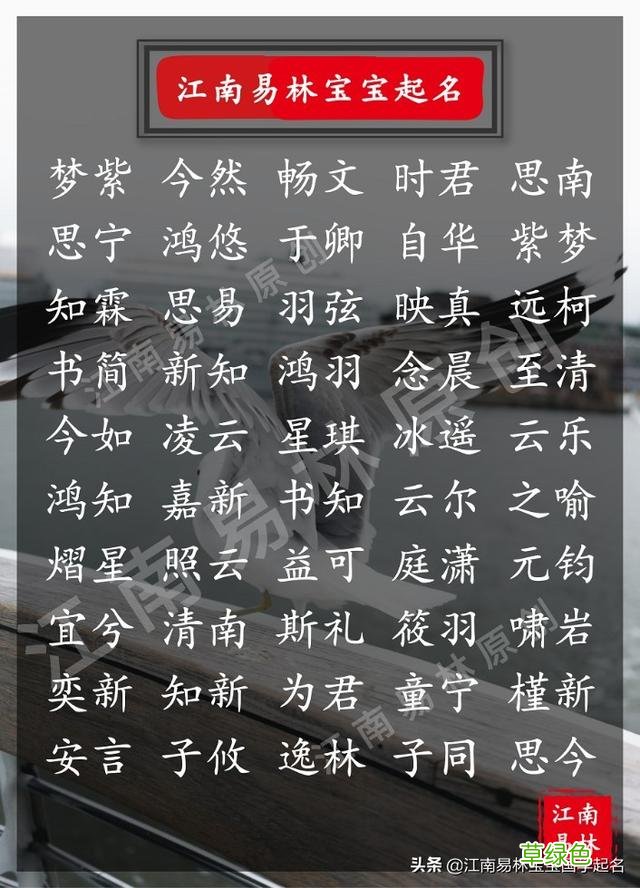 江南易林宝宝起名
梦紫 今然 畅文 时君 思南
思宁 鸿悠 于卿 自华 紫梦
知霖 思易 羽弦 映真 远柯
书简 新知 鸿羽 念晨 至清
今如 凌云 星琪 冰遥 云乐
鸿知 嘉新 书知 云尔 之喻
熠星 照云 益可 庭潇 元钧
宜兮 清南 斯礼 筱羽 啸岩
奕新 知新 为君 童宁 槿新
安言 子攸 逸林 子同 思今
江南易林原创
江南易林原创
江南易林原创
江南
易林
草绿色
头条 @江南易林宝宝国学起名